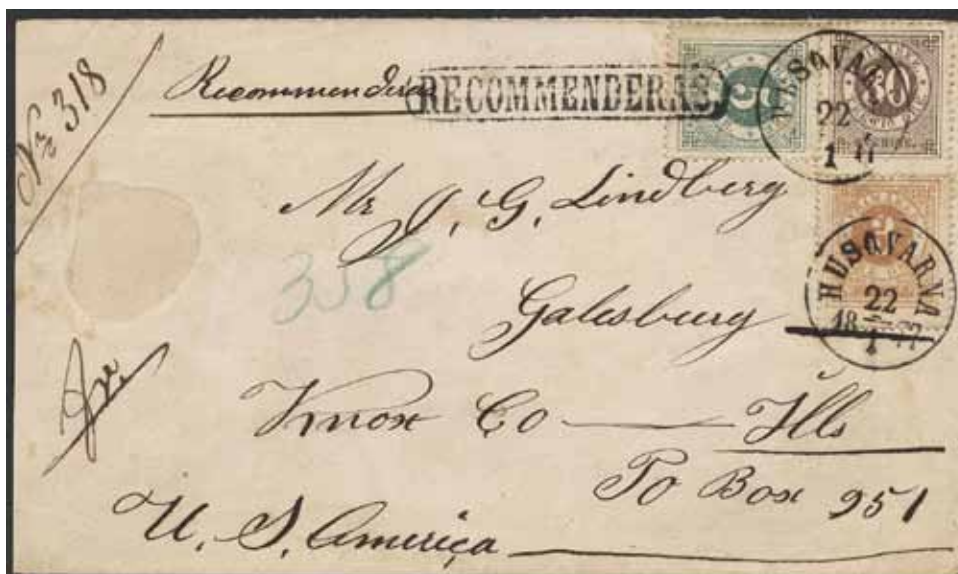 Nr 318
Recommenderas
RECOMMENDERAS
5
30
HUSQVARNA
22
1
HUSQVARNA
22
18 1 77
Mr J. G. Lindberg
358
Galesburg
Knox Co — Ills
Po Box 951
U. S. America